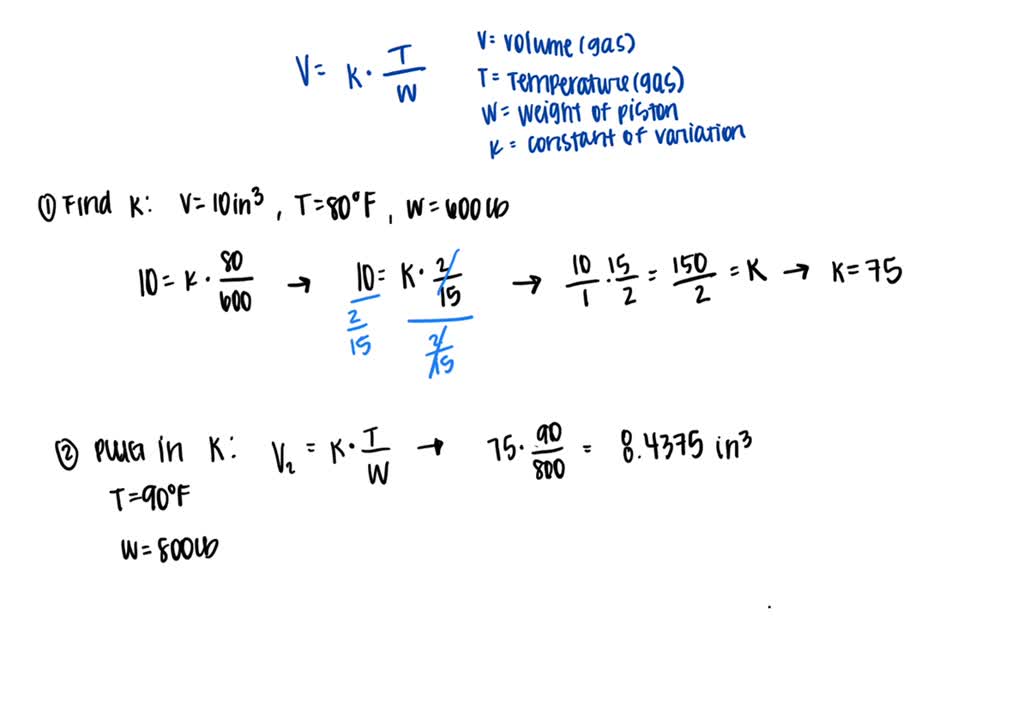 V = K · T/W
V = volume (gas)
T = Temperature (gas)
W = weight of piston
K = constant of variation
① Find K: V = 10 in³, T = 80°F, W = 600 lb
10 = K · 80/600 → 10 = K · 2/15 → 10/1 · 15/2 = 150/2 = K → K = 75
2/15 2/15
② Plug in K: V₂ = K · T/W → 75 · 90/800 = 8.4375 in³
T = 90°F
W = 800 lb